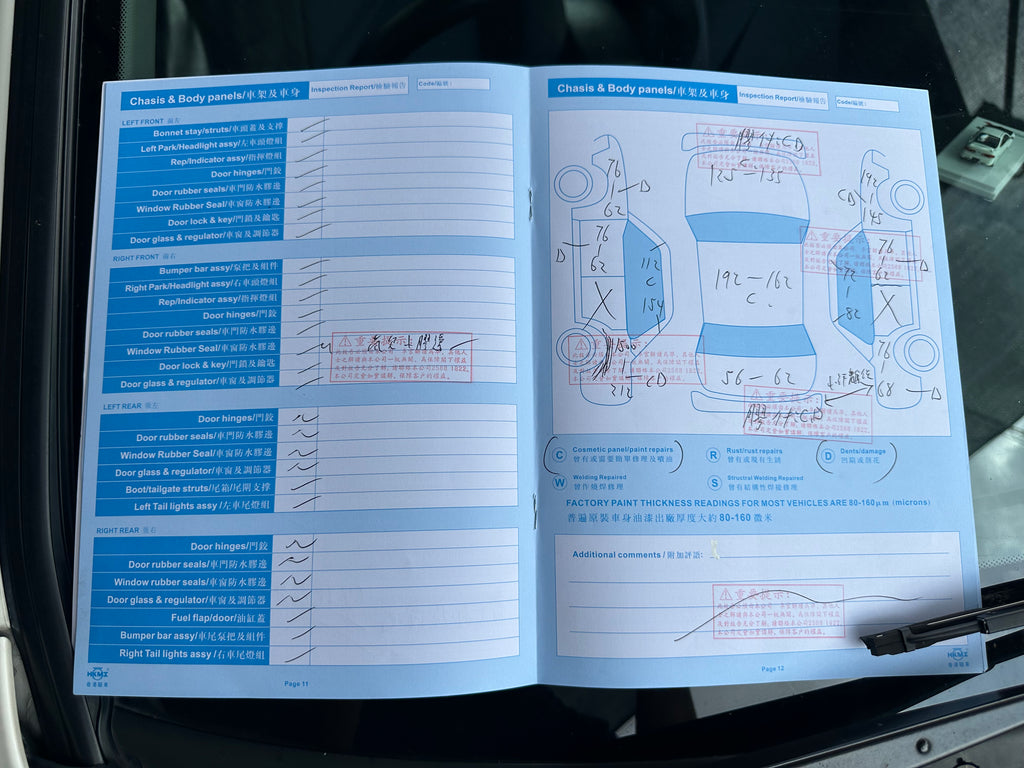 Chasis & Body panels/車架及車身
Inspection Report/檢驗報告
Code/編號:
LEFT FRONT 前左
Bonnet stay/struts/車頭蓋及支撐
Left Park/Headlight assy/左車頭燈組
Rep/Indicator assy/指揮燈組
Door hinges/門鉸
Door rubber seals/車門防水膠邊
Window Rubber Seal/車窗防水膠邊
Door lock & key/門鎖及鑰匙
Door glass & regulator/車窗及調節器
RIGHT FRONT 前右
Bumper bar assy/泵把及組件
Right Park/Headlight assy/右車頭燈組
Rep/Indicator assy/指揮燈組
Door hinges/門鉸
Door rubber seals/車門防水膠邊
Window Rubber Seal/車窗防水膠邊
Door lock & key/門鎖及鑰匙
Door glass & regulator/車窗及調節器
重要提示:
LEFT REAR 後左
Door hinges/門鉸
Door rubber seals/車門防水膠邊
Window Rubber Seal/車窗防水膠邊
Door glass & regulator/車窗及調節器
Boot/tailgate struts/尾箱/尾閘支撐
Left Tail lights assy/左車尾燈組
RIGHT REAR 後右
Door hinges/門鉸
Door rubber seals/車門防水膠邊
Window rubber seals/車窗防水膠邊
Door glass & regulator/車窗及調節器
Fuel flap/door/油缸蓋
Bumper bar assy/車尾泵把及組件
Right Tail lights assy/右車尾燈組
HKMI
香港驗車
Page 11
Chasis & Body panels/車架及車身
Inspection Report/檢驗報告
Code/編號:
重要提示:
膠件CD
C
125-135
76
1-D
62
192
CD
145
76
D
62
112
C
154
192-162
C.
72
82
76
D
62
X
X
1500
CD
212
56-62
76
68
D
膠件CD
重要提示:
C Cosmetic panel/paint repairs
曾有或需要簡單修理及噴油
R Rust/rust repairs
曾有或現有生銹
D Dents/damage
凹陷或落花
W Welding Repaired
曾作燒焊修理
S Structral Welding Repaired
曾有結構性焊接修理
FACTORY PAINT THICKNESS READINGS FOR MOST VEHICLES ARE 80-160μm (microns)
普遍原裝車身油漆出廠厚度大約 80-160 微米
Additional comments / 附加評語:
重要提示:
HKMI
香港驗車
Page 12